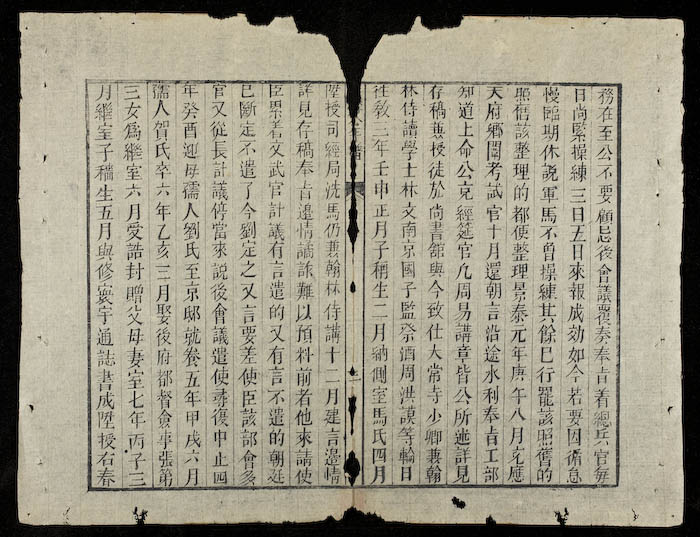 務在至公不要顧忌後會議覆奏奉旨着總兵官每
日尚緊操練三日五日來報成効如今若要因循怠
慢臨期休説軍馬不曾操練其餘已行罷該照舊的
照舊該整理的都便整理景泰元年庚午八月充應
天府鄉闈考試官十月還朝言沿途水利奉旨工部
知道上命公充經筵官凡周易講章皆公所進詳見
存稿兼授徒於尚書舘與今致仕大常寺少卿兼翰
林侍讀學士林文南京國子監祭酒周洪謨等輪日
徃教三年壬申正月子稱生二月納側室馬氏四月
陞授司經局洗馬仍兼翰林侍講十二月建言邊情
詳見存稿奉旨邊情譎詐難以預料前者他來請使
臣累着文武官計議有言遣的又有言不遣的朝廷
已斷定不遣了今劉定之又言要差使臣該部會多
官又從長計議停當來説後會議遣使尋復中止四
年癸酉迎母孺人劉氏至京邸就養五年甲戌六月
孺人賀氏卒六年乙亥三月娶後府都督僉事張第
三女為繼室六月受誥封贈父母妻室七年丙子三
月繼室子穡生五月與修寰宇通誌書成陞授右春